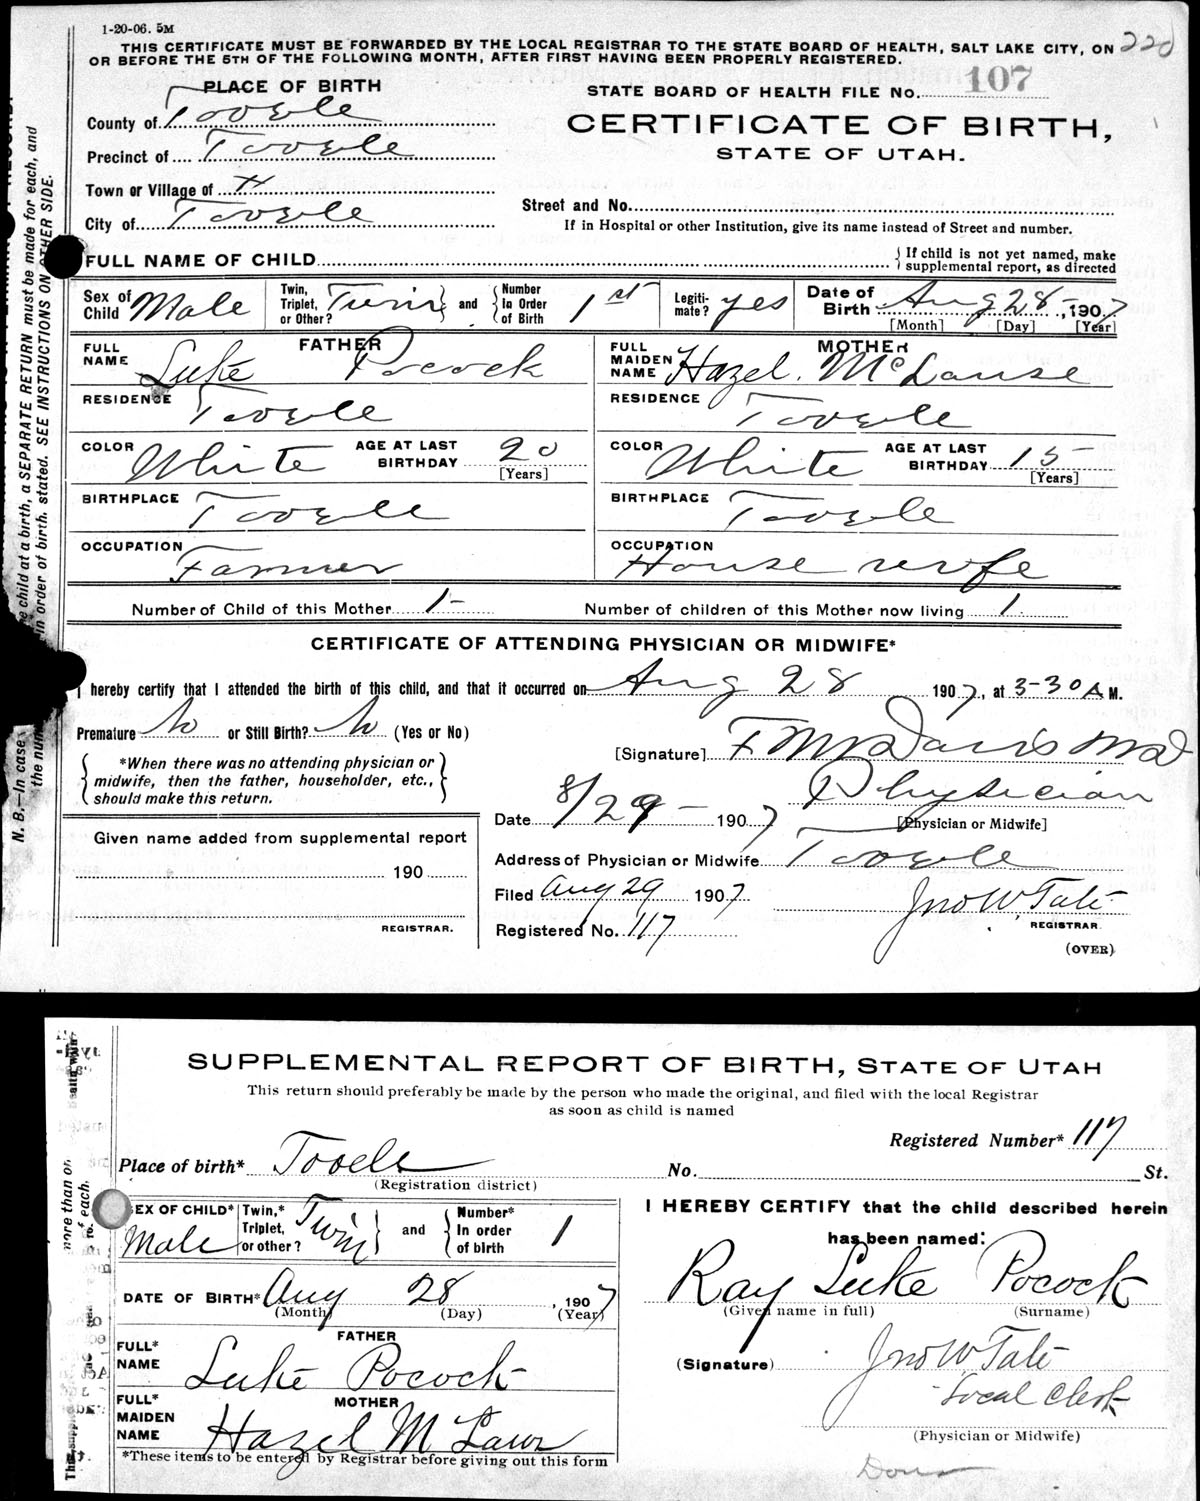 1-20-06. 5M
THIS CERTIFICATE MUST BE FORWARDED BY THE LOCAL REGISTRAR TO THE STATE BOARD OF HEALTH, SALT LAKE CITY, ON 220
OR BEFORE THE 5TH OF THE FOLLOWING MONTH, AFTER FIRST HAVING BEEN PROPERLY REGISTERED.
PLACE OF BIRTH
STATE BOARD OF HEALTH FILE No. 107
County of Tooele
CERTIFICATE OF BIRTH,
Precinct of Tooele
STATE OF UTAH.
Town or Village of
City of Tooele
Street and No.
If in Hospital or other Institution, give its name instead of Street and number.
FULL NAME OF CHILD
If child is not yet named, make
supplemental report, as directed
Sex of Child Male
Twin, Triplet, or Other? Twin and Number In Order of Birth 1st
Legitimate? yes
Date of Birth Aug 28, 1907
[Month] [Day] [Year]
FATHER
FULL NAME Luke Pocock
MOTHER
FULL MAIDEN NAME Hazel. McLause
RESIDENCE Tooele
RESIDENCE Tooele
COLOR White AGE AT LAST BIRTHDAY 20 [Years]
COLOR White AGE AT LAST BIRTHDAY 15 [Years]
BIRTHPLACE Tooele
BIRTHPLACE Tooele
OCCUPATION Farmer
OCCUPATION House wife
Number of Child of this Mother 1- Number of children of this Mother now living 1
CERTIFICATE OF ATTENDING PHYSICIAN OR MIDWIFE*
I hereby certify that I attended the birth of this child, and that it occurred on Aug 28 1907, at 3-30 A M.
Premature No or Still Birth? No (Yes or No)
[Signature] F M Davis MD
*When there was no attending physician or
midwife, then the father, householder, etc.,
should make this return.
Physician
Date 8/29- 1907 [Physician or Midwife]
Given name added from supplemental report
Address of Physician or Midwife Tooele
190
Filed Aug 29 1907 Jno W. Tate
REGISTRAR.
REGISTRAR.
Registered No. 117
(OVER)
N. B.—In case child at a birth, a SEPARATE RETURN must be made for each, and
the num in order of birth, stated. SEE INSTRUCTIONS ON OTHER SIDE.
SUPPLEMENTAL REPORT OF BIRTH, STATE OF UTAH
This return should preferably be made by the person who made the original, and filed with the local Registrar
as soon as child is named
Registered Number* 117
Place of birth* Tooele No. St.
(Registration district)
SEX OF CHILD* Male
Twin,* Triplet, or other? Twin and Number* In order of birth 1
I HEREBY CERTIFY that the child described herein
has been named:
DATE OF BIRTH* Aug 28, 1907
(Month) (Day) (Year)
Ray Luke Pocock
(Given name in full) (Surname)
FATHER
FULL* NAME Luke Pocock
(Signature) Jno W Tate
Local Clerk
MOTHER
FULL* MAIDEN NAME Hazel M Laws
(Physician or Midwife)
*These items to be entered by Registrar before giving out this form